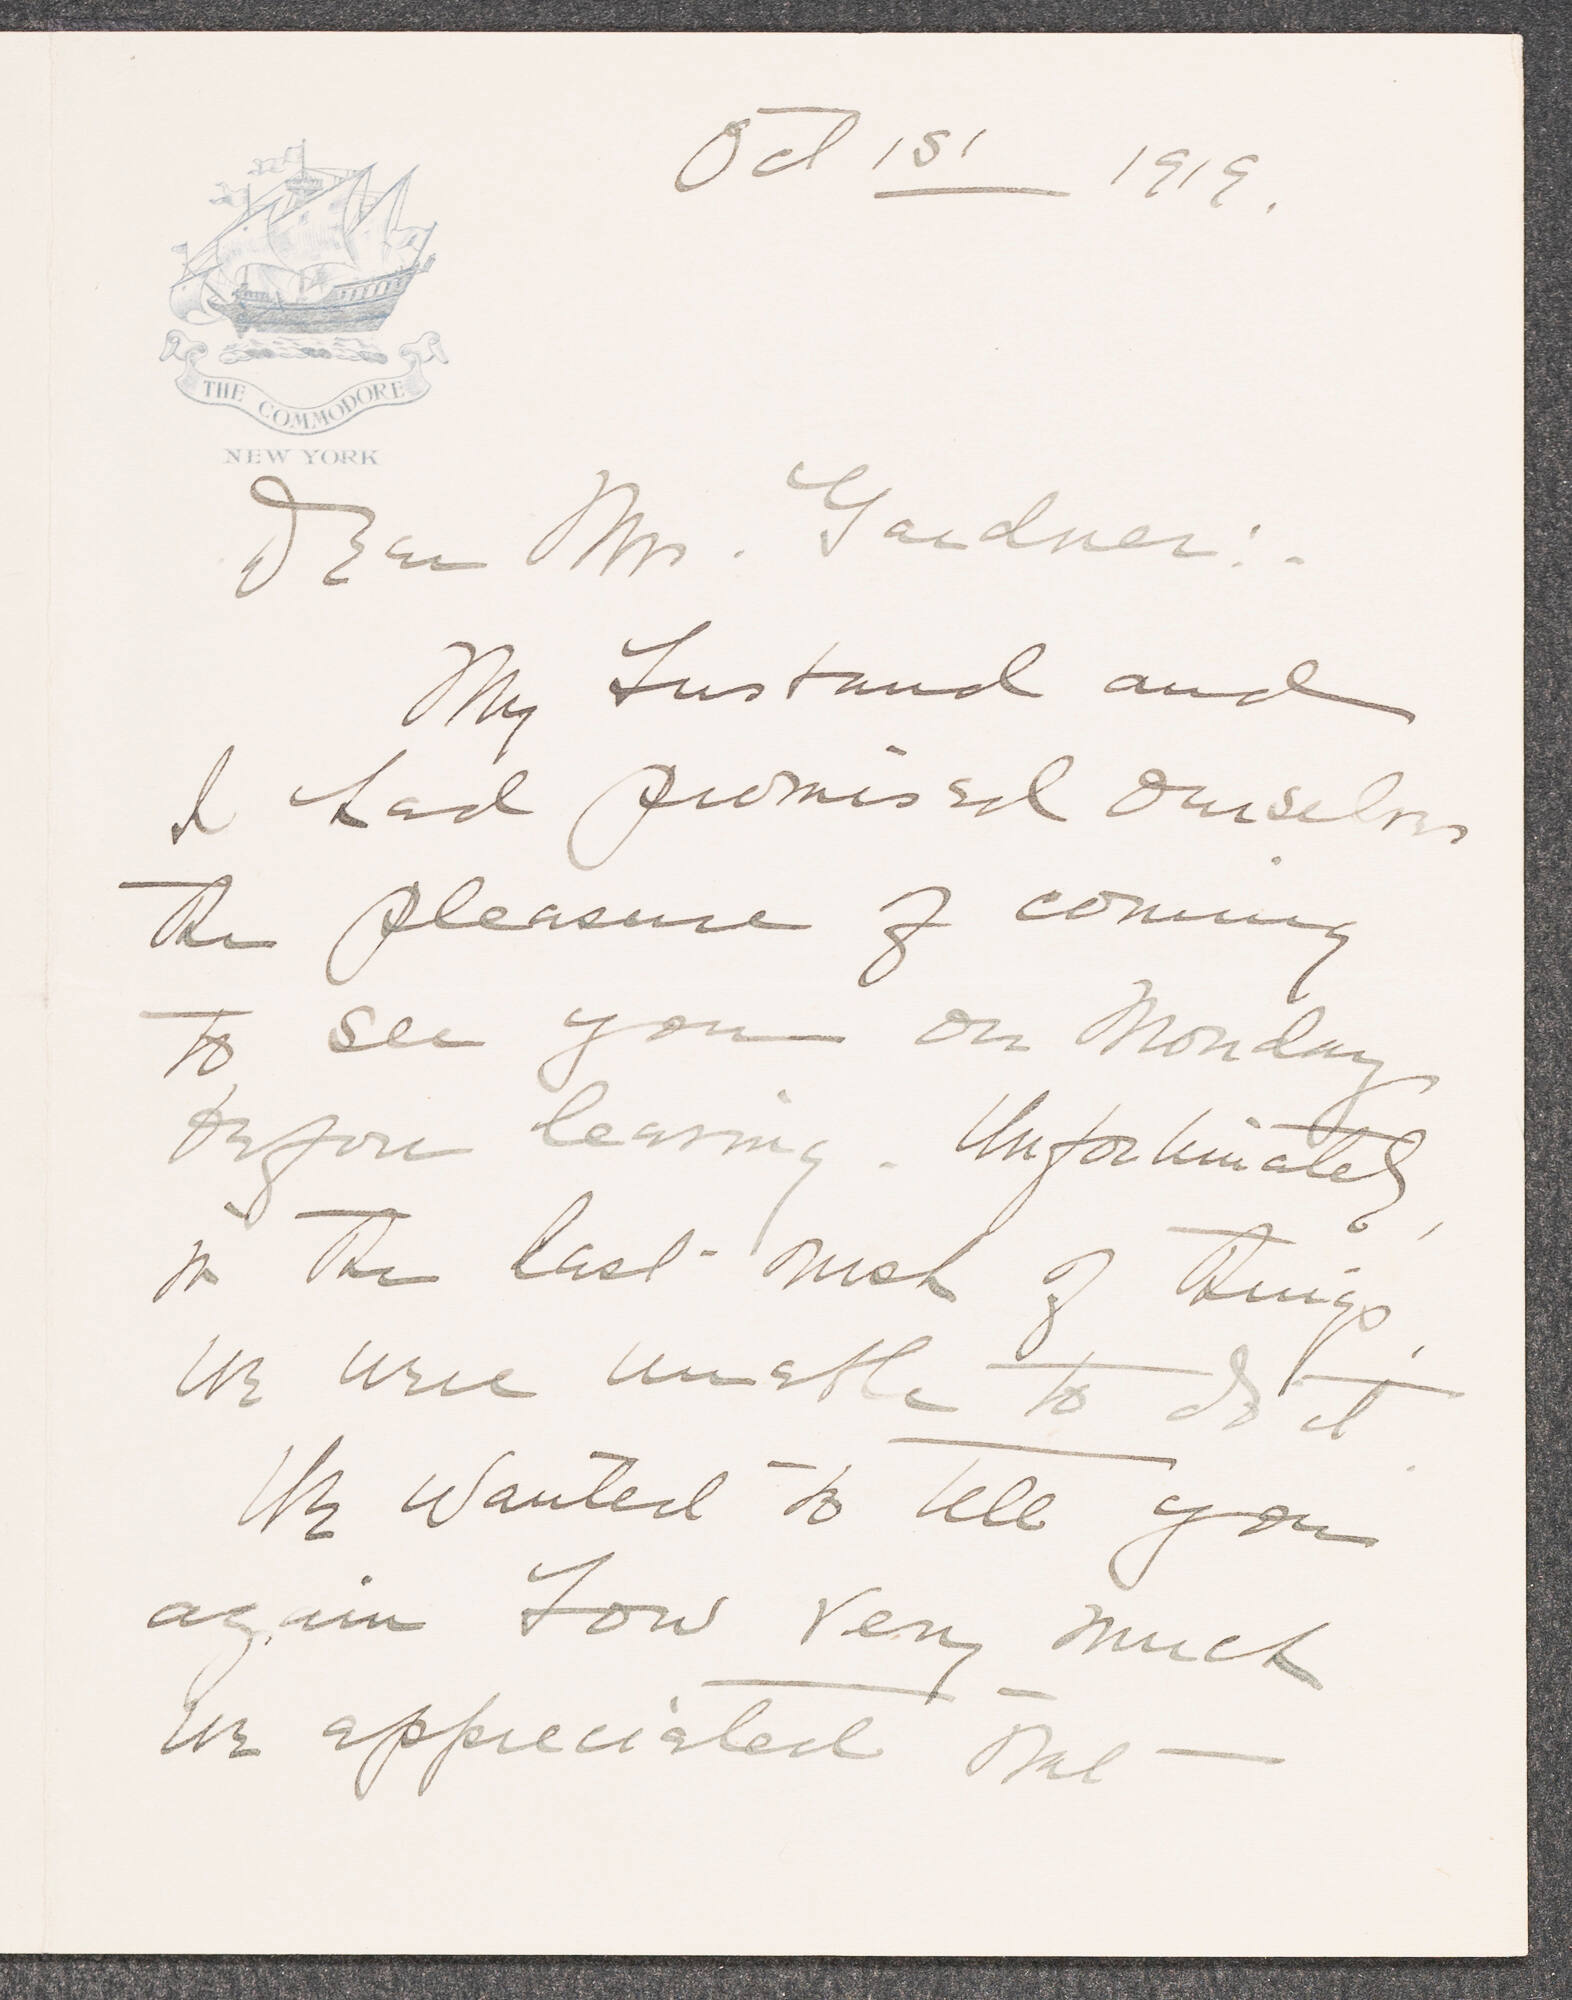 Oct 1st 1919.
THE COMMODORE
NEW YORK
Dear Mrs. Gardner:-
My husband and
I had promised ourselves
the pleasure of coming
to see you on Monday
before leaving. Unfortunately,
in the last rush of things,
we were unable to do it.
We wanted to tell you
again how very much
we appreciated the